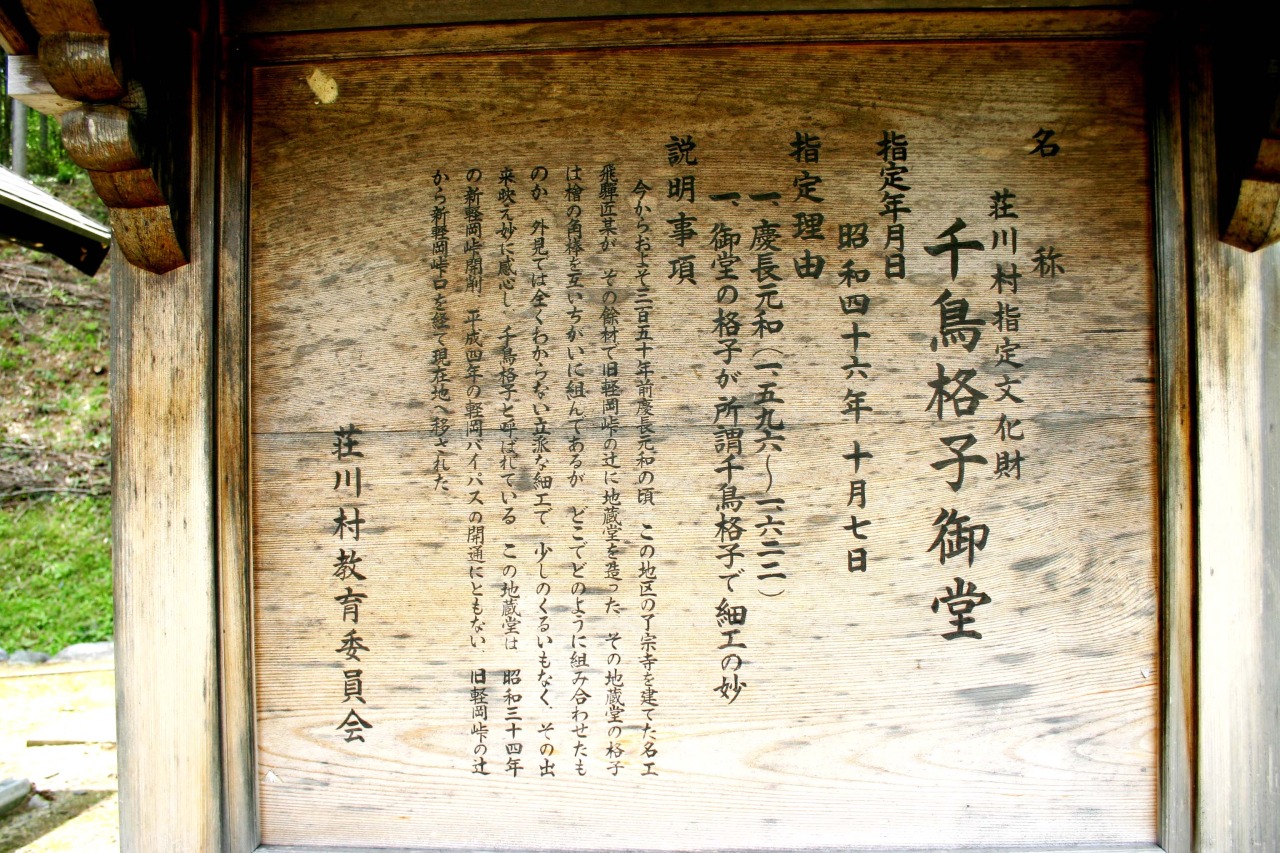 名称
荘川村指定文化財
千鳥格子御堂
指定年月日
昭和四十六年十月七日
指定理由
一、慶長元和（一、五九六〜一、六二二）
一、御堂の格子が所謂千鳥格子で細工の妙
説明事項
今からおよそ三百五十年前慶長元和の頃、この地区の了宗寺を建てた名工
飛騨匠某が、その餘材で旧軽岡峠の辻に地蔵堂を造った。その地蔵堂の格子
は檜の角様を互いちがいに組んであるが、どこでどのように組み合わせたも
のか、外見では全くわからない立派な細工で、少しのくるいもなく、その出
来映え妙に感心し、千鳥格子と呼ばれている。この地蔵堂は、昭和三十四年
の新軽岡峠開削、平成四年の軽岡バイパスの開通にともない、旧軽岡峠の辻
から新軽岡峠口を経て現在地へ移された。
荘川村教育委員会